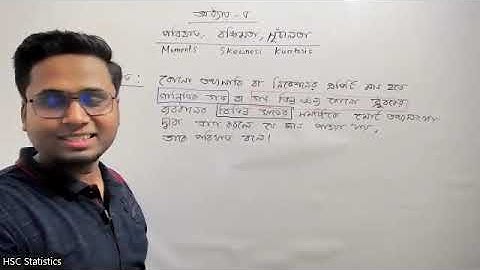 অধ্যায় - ৫
পরিঘাত, বঙ্কিমতা, সূঁচলতা
Moments Skewness Kurtosis
: কোনো তথ্যসারি বা নিবেশনের প্রতিটি মান হতে
গাণিতিক গড় বা
ব্যবধানের বিভিন্ন ঘাতের সমষ্টিকে মোট
দ্বারা ভাগ করলে যে মান পাওয়া যায়,
তাকে পরিঘাত বলে।
HSC Statistics